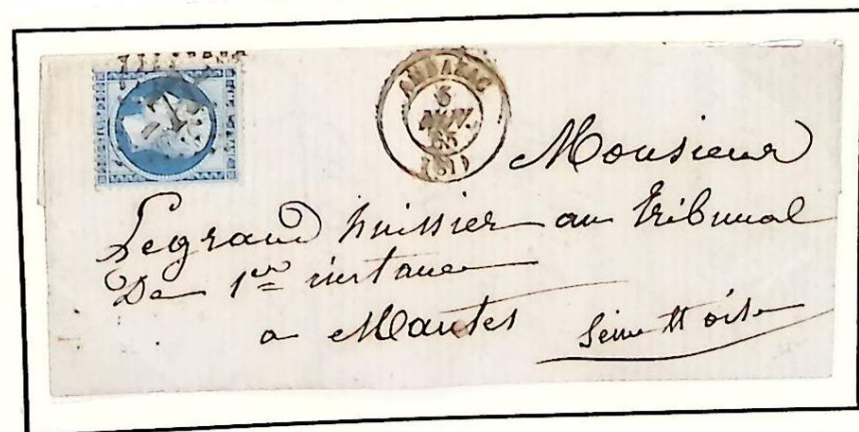 AMBAZAC
5
NOV.
65
Monsieur
Legrand huissier au tribunal
De 1ere instance
a Mantes
Seine et oise